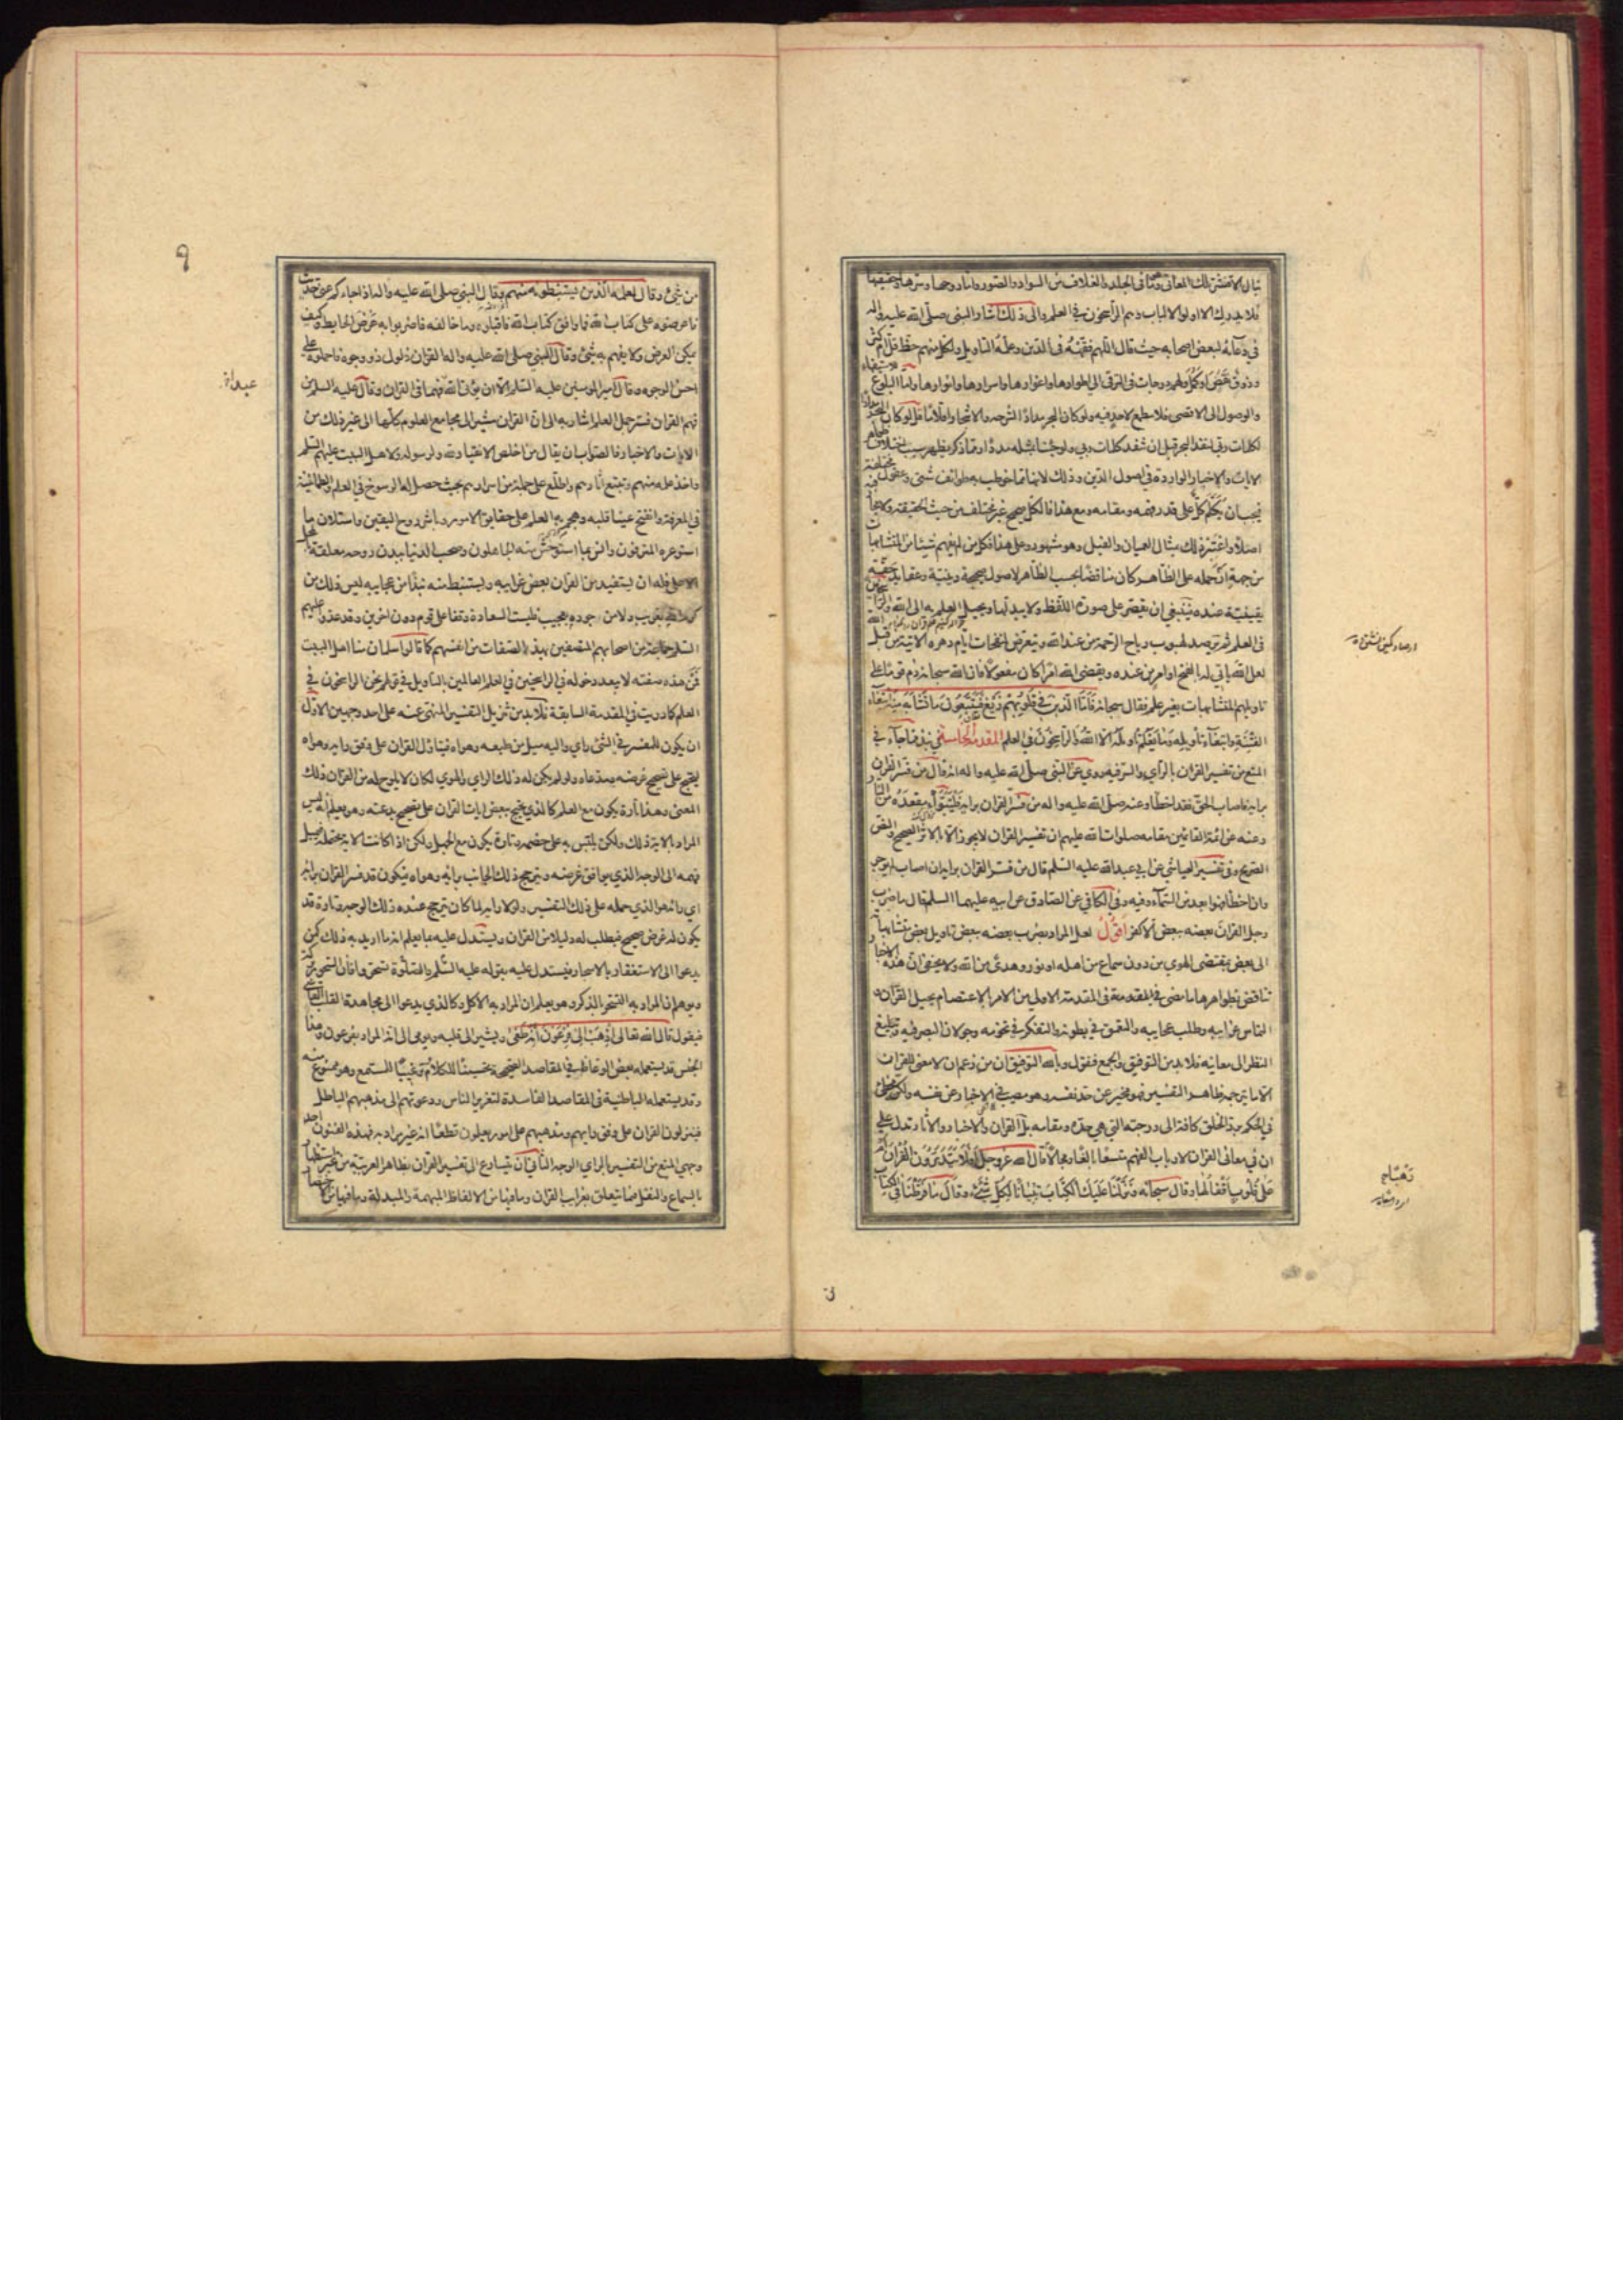 فلا يدركه الا اولوا الالباب وهم الراسخون في العلم والى ذلك اشار النبي صلى الله عليه واله
في دعائه لبعض اصحابه حيث قال اللهم فقهه في الدين وعلمه التاويل ولكل منهم حظ قل ام كثر
وذوق نقص او كمل ولهم درجات في الترقي الى اطوارها واغوارها واسرارها وانوارها واما البلوغ
والوصول الى الاقصى فلا مطمع لاحد فيه ولو كان البحر مدادا لشرحه والاشجار اقلاما قل لو كان البحر مدادا
لكلمات ربي لنفد البحر قبل ان تنفد كلمات ربي ولو جئنا بمثله مددا ومما ذكر يظهر سبب اختلاف ظواهر
الايات والاخبار الواردة في اصول الدين وذلك لانها مما خوطب به طوائف شتى وعقول مختلفة
فيجب ان يكلم كل على قدر فهمه ومقامه ومع هذا فالكل صحيح غير مختلف من حيث الحقيقة ولا مجاز فيه
اصلا واعتبر ذلك بمثال العميان والفيل وهو مشهور وعلى هذا فكل من لم يفهم شيئا من المتشابهات
من جهة ان حمله على الظاهر كان مناقضا بحسب الظاهر لاصول صحيحة دينية وعقايد حقة
يقينية عنده فينبغي ان يقتصر على صورة اللفظ ولا يبدلها ويحيل العلم به الى الله والراسخين
في العلم ثم يترصد لهبوب رياح الرحمة من عند الله ويتعرض لنفحات ايام دهره الاتية من قبل الله
لعل الله ياتي له بالفتح او امر من عنده ويقضي الله امرا كان مفعولا فان الله سبحانه ذم قوما على
تاويلهم المتشابهات بغير علم فقال سبحانه فَاَمَّا الَّذينَ فى قُلُوبِهِمْ زَيْغٌ فَيَتَّبِعُونَ مَا تَشَابَهَ مِنْهُ ابْتِغَاءَ
الْفِتْنَةِ وَابْتِغَاءَ تَأويلِهِ وَمَا يَعْلَمُ تَأويلَهُ اِلّا اللهُ وَالرّاسِخُونَ فِي العلم المقدمة الخامسة في نبذ مما جاء في
المنع من تفسير القران بالراي والسر فيه روي عن النبي صلى الله عليه واله انه قال من فسر القران
برايه فاصاب الحق فقد اخطأ وعنه صلى الله عليه واله من فسر القران برايه فليتبوأ مقعده من النار
وعنه عن ائمة القائمين مقامه صلوات الله عليهم ان تفسير القران لا يجوز الا بالاثر الصحيح والنص
الصريح وفي تفسير العياشي عن ابي عبدالله عليه السلم قال من فسر القران برايه ان اصاب لم يوجر
وان اخطأ فهو ابعد من السماء وفيه وفي الكافي عن الصادق عن ابيه عليهما السلم قال ما ضرب
رجل القرآن بعضه ببعض الا كفر اقول لعل المراد بضرب بعضه ببعض تاويل بعض متشابهاته
الى بعض بمقتضى الهوى من دون سماع من اهله او نور وهدى من الله ولا يخفى ان هذه الاخبار
تناقض بظواهرها ما مضى في المقدمة الاولى من الامر بالاعتصام بحبل القرآن و
التماس غرايبه وطلب عجايبه والتعمق في بطونه والتفكر في تخومه وجولان البصر فيه وتبليغ
النظر الى معانيه فلا بد من التوفيق والجمع فنقول وبالله التوفيق ان من زعم ان لا معنى للقران
الا ما يترجمه ظاهر التفسير فهو مخبر عن حد نفسه وهو مصيب في الاخبار عن نفسه ولكنه مخطئ
في الحكم برد الخلق كافة الى درجته التي هي حده ومقامه بل القران والاخبار والاثار تدل على
ان في معاني القران لارباب الفهم متسعا بالغا ومجالا قال الله عز وجل اَفَلا يَتَدَبَّرُونَ الْقُرْآنَ اَمْ
عَلى قُلُوبٍ اَقْفالُها وقال سبحانه وَنَزَّلْنَا عَلَيْكَ الْكِتَابَ تِبْيَانًا لِكُلِّ شَيْءٍ وقال مَا فَرَّطْنَا فِي الْكِتَابِ
من شئ وقال لعلمه الذين يستنبطونه منهم وقال النبي صلى الله عليه واله اذا جاءكم عني حديث
فاعرضوه على كتاب الله فما وافق كتاب الله فاقبلوه وما خالفه فاضربوا به عرض الحايط وكيف
يمكن العرض ولا يفهم به شئ وقال النبي صلى الله عليه واله القران ذلول ذو وجوه فاحملوه على
احسن الوجوه وقال امير المومنين عليه السلم الا ان يؤتي الله فهما في القران وقال عليه السلم من
فهم القران فسر جمل العلم اشار به الى ان القران مشير الى مجامع العلوم كلها الى غير ذلك من
الايات والاخبار فالصواب ان يقال من اخلص الانقياد لله ولرسوله ولاهل البيت عليهم السلم
واخذ علمه منهم وتتبع اثارهم واطلع على جملة من اسرارهم بحيث حصل له الرسوخ في العلم والطمانينة
في المعرفة وانفتح عينا قلبه وهجم به العلم على حقايق الامور وباشر روح اليقين واستلان ما
استوعره المترفون وانس بما استوحش منه الجاهلون وصحب الدنيا ببدن روحه معلقة بالمحل
الاعلى فله ان يستفيد من القران بعض غرايبه ويستنبط منه نبذا من عجايبه ليس ذلك من
كرم الله بغريب ولا من جوده بعجيب فليست السعادة وقفا على قوم دون اخرين وقد عدوا عليهم
السلم جماعة من اصحابهم المتصفين بهذه الصفات من انفسهم كما قالوا سلمان منا اهل البيت
فمن هذه صفته لا يبعد دخوله في الراسخين في العلم العالمين بالتاويل في قولهم نحن الراسخون في
العلم كما دريت في المقدمة السابقة فلا بد من تنزيل التفسير المنهي عنه على احد وجهين الاول
ان يكون للمفسر في الشئ راي واليه ميل من طبعه وهواه فيتاول القران على وفق رايه وهواه
ليحتج على تصحيح غرضه ومدعاه ولو لم يكن له ذلك الراي والهوى لكان لا يلوح له من القران ذلك
المعنى وهذا تارة يكون مع العلم كالذي يحتج ببعض ايات القران على تصحيح بدعته وهو يعلم انه ليس
المراد بالاية ذلك ولكن يلبس به على خصمه وتارة يكون مع الجهل ولكن اذا كانت الاية محتملة فيميل
فهمه الى الوجه الذي يوافق غرضه ويترجح ذلك الجانب برايه وهواه فيكون قد فسر القران برايه
اي رايه هو الذي حمله على ذلك التفسير ولولا رايه لما كان يترجح عنده ذلك الوجه وتارة قد
يكون له غرض صحيح فيطلب له دليلا من القران ويستدل عليه بما يعلم انه ما اريد به ذلك كمن
يدعوا الى الاستغفار بالاسحار فيستدل عليه بقوله عليه السلم تسحروا فان السحور بركة
ويوهم ان المراد به التسحر بالذكر وهو يعلم ان المراد به الاكل وكالذي يدعوا الى مجاهدة القلب القاسي
فيقول قال الله تعالى اذْهَبْ اِلى فِرْعَوْنَ اِنَّهُ طَغى ويشير الى قلبه ويومي الى انه المراد بفرعون وهذا
الجنس قد يستعمله بعض الوعاظ في المقاصد الصحيحة تحسينا للكلام وترغيبا للمستمع وهو ممنوع منه
وقد يستعمله الباطنية في المقاصد الفاسدة لتغرير الناس ودعوتهم الى مذهبهم الباطل
فينزلون القران على وفق رايهم ومذهبهم على امور يعلمون قطعا انه غير مراد به فهذه الفنون احد
وجهي المنع من التفسير بالراي الوجه الثاني ان يتسارع الى تفسير القران بظاهر العربية من غير استظهار
بالسماع والنقل فيما يتعلق بغرايب القران وما فيها من الالفاظ المبهمة والمبدلة وما فيها من الاختصار